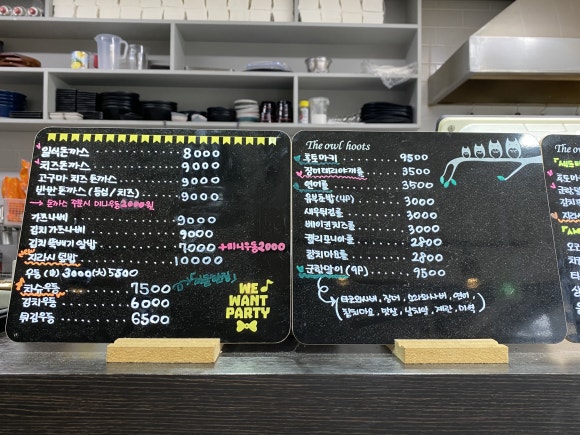 일식돈까스 8000
치즈돈까스 9000
고구마 치즈 돈까스 9000
반반 돈까스 (등심/치즈) 9000
→ 돈까스 주문시 미니우동 2000원
가츠나베 9000
김치가츠나베 9000
김치 뚝배기 알밥 7000 +미니우동2000
지라시 덮밥 10000
우동 (小) 3000 (大) 5500
7500
김치우동 6000
튀김우동 6500
WE
WANT
PARTY
The owl hoots
후토마키 9500
장어데리야끼롤 3500
연어롤 3500
유부초밥 (4P) 3000
새우튀김롤 3000
베이컨치즈롤 3000
캘리포니아롤 2800
참치마요롤 2800
군함말이 (9P) 9500
(타코와사비, 장어, 소라와사비, 연어
참치마요, 맛살, 날치알, 계란, 미역)